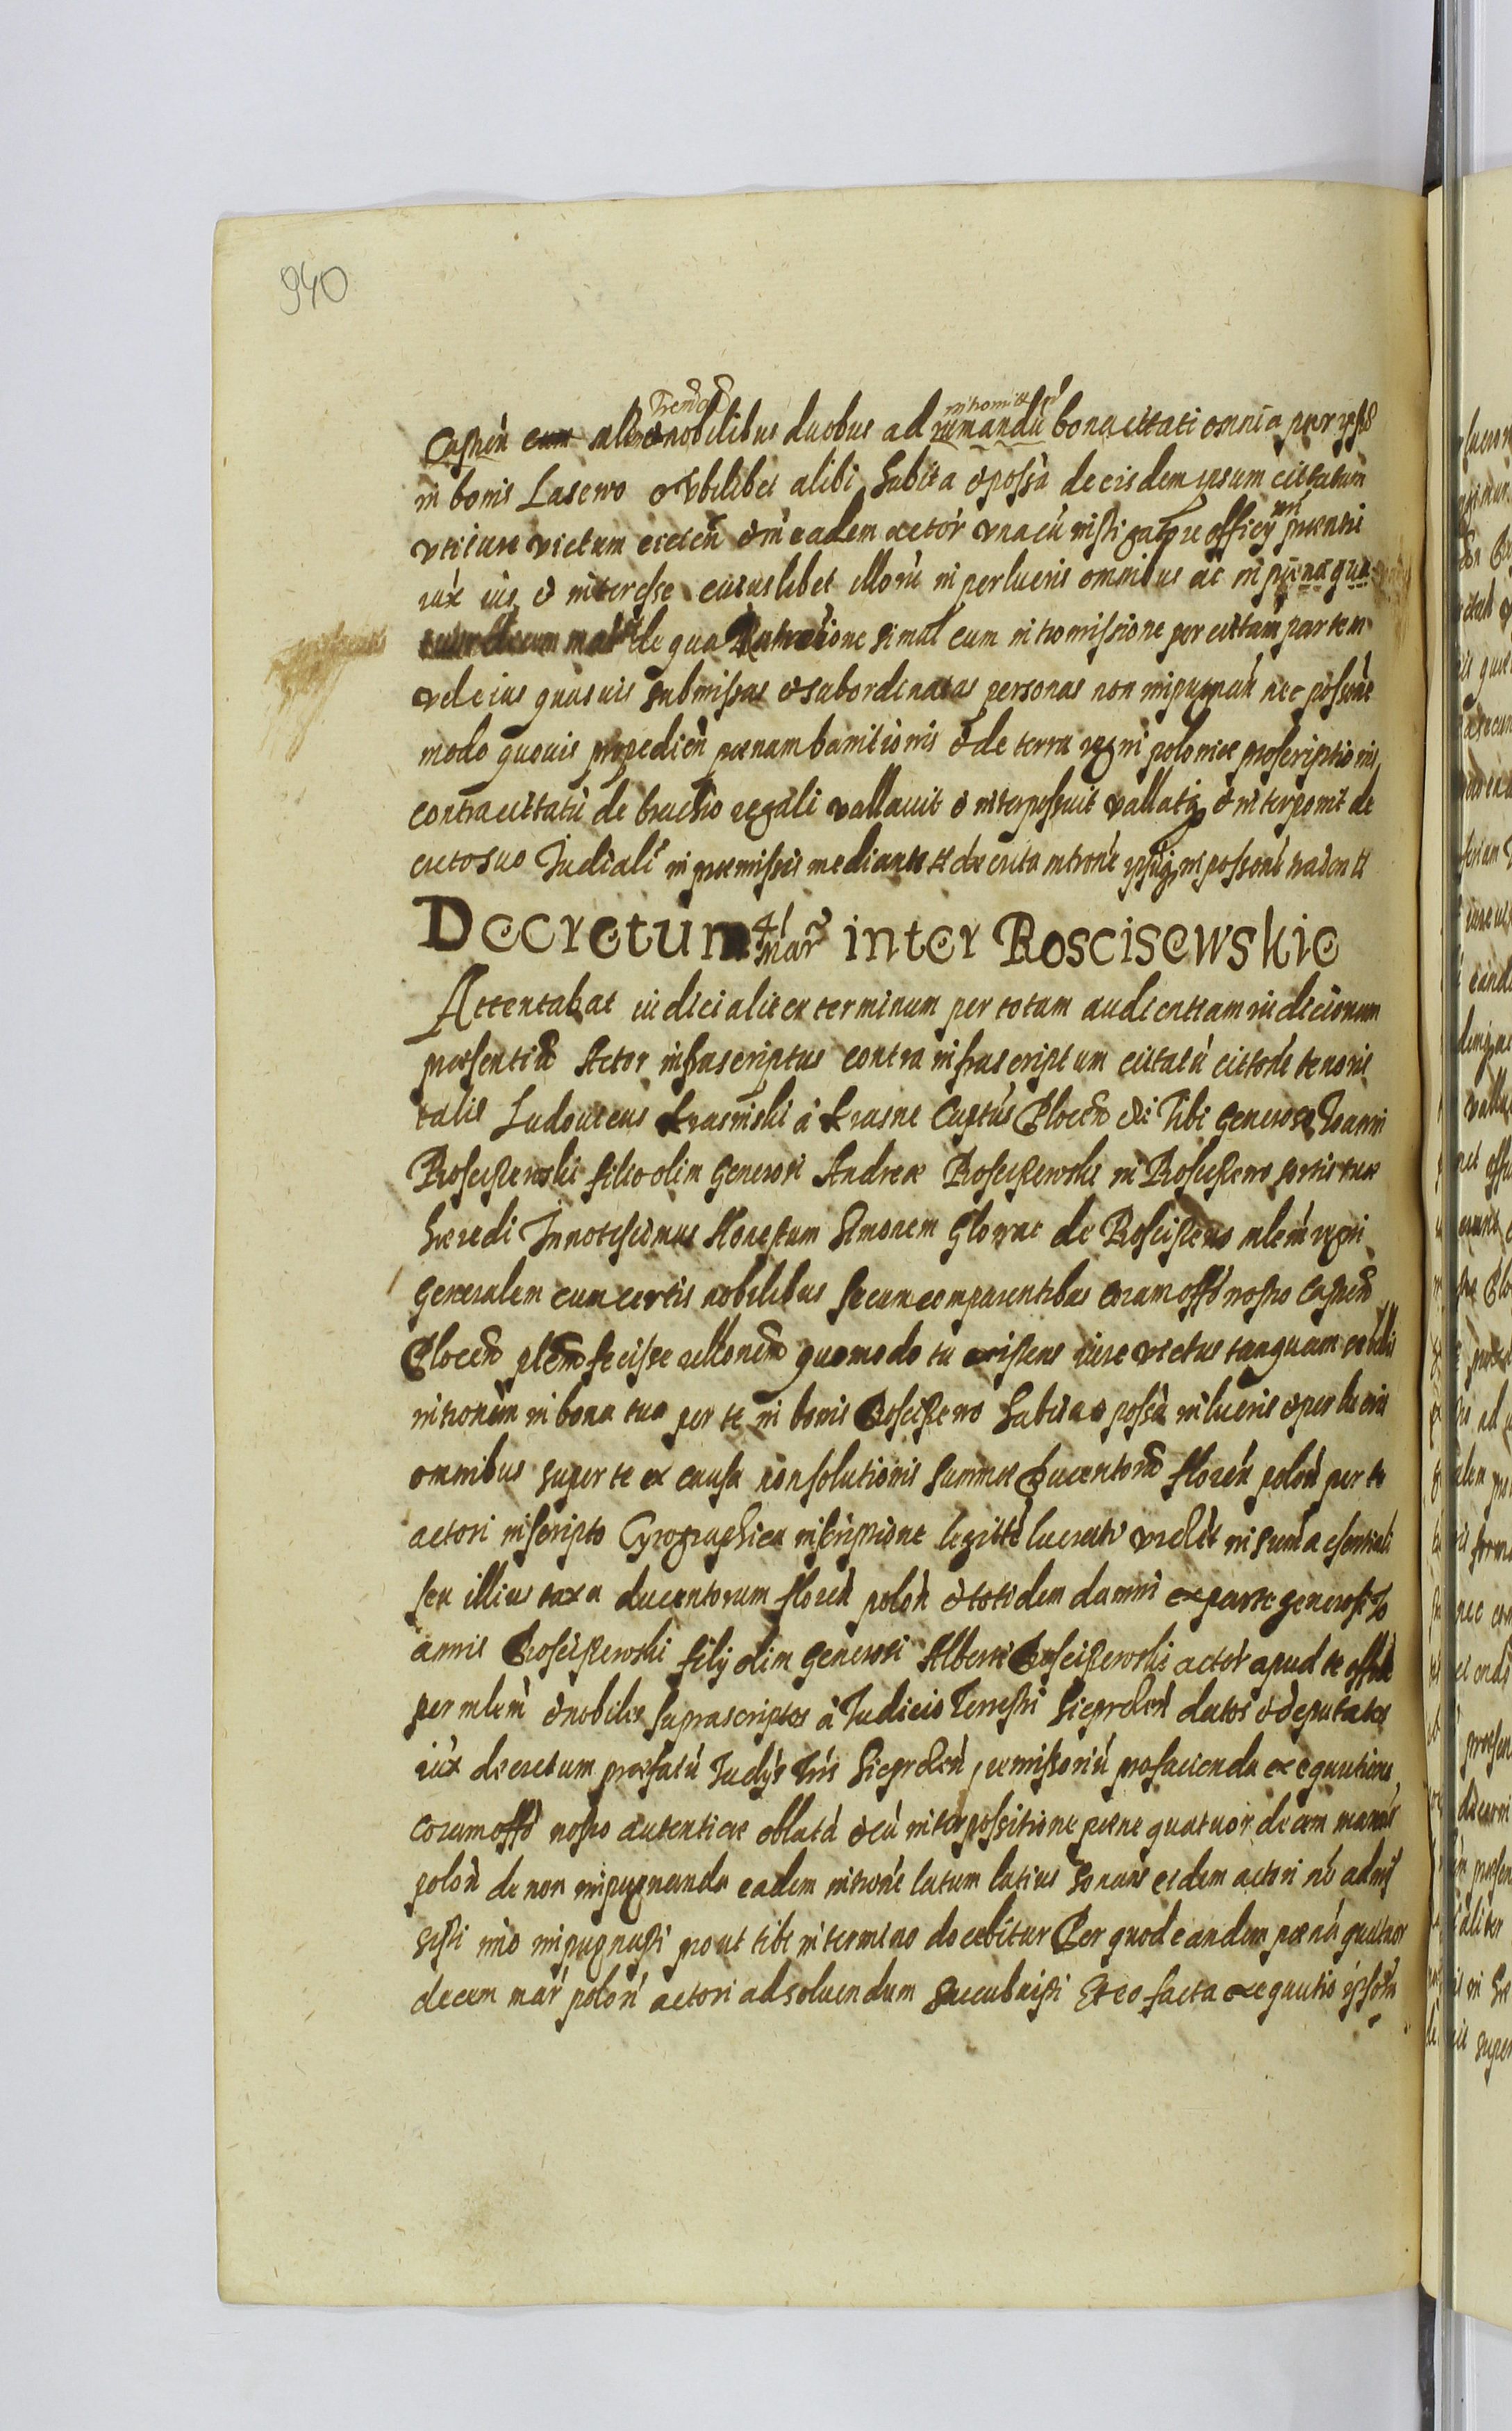 940
Castren̄ cum mlem et nobilibus duobus ad rumandū bona citati omnia per ipsū
in bonis Lasewo et Vbilibet alibi habita et possā de eisdem ipsum cittatum
vti iure victum eicien̄ et in eadem actōr vna cū instigatore officÿ nri praesentis
iux̄ ius et interesse cuiuslibet illorū in perlucris omnibus ac in
de qua simul cum intromissione per cittām partem
vel eius quasuis submissas et subordinatas personas non impugnān nec possōne
modo quouis praepedien̄ poenam bannitionis et de terra regni poloniae proscriptionis
contra cittatū de brachio regali vallauit et interposuit vallatq et interponit de
creto suo Judiāli in praemissis mediante intrōne ipsiq in possonē traden
Decretum 4i Mar inter Roscisewskie
Attentabat iudicialiter terminum per totam audientiam iudiciorum
praesentiū Actor infrascriptus contra infrascriptum cittatū cittōne tenoris
talis Ludouicus Krasinski à Krasne Captūs Plocen̄ etc Tibi Generoso Joanni
Rosciszewski filio olim Generosi Andreae Rosciszewski in Rosciszewo sortis tuae
haeredi Innotescimus Honestum Simonem Glowac de Rosciszewo mlem̄ regni
Generalem cum certis nobilibus secum comparentibus coram offō nostro Castren̄
Plocen̄ plen̄ fecisse rellonem̄ quomodo tu existens iure victus tanquam rebellis
intronem̄ in bona tua per te in bonis Rosciszewo habita et possā in lucris et perlucris
omnibus super te ex causa non solutionis summae Ducentorū floren̄ polon̄ per te
actori inscripto Cyrographica inscriptione legittē lucrati videlēt in summa essentiali
seu illius taxa ducentorum floren̄ polon̄ et totidem damni ex parte generosi Jo
annis Rosciszewski filÿ olim Generosi Alberti Rosciszewski actōr apud te
per mlem̄ et nobiles suprascriptos à Judicio Terrestri Sieprcen̄ datos et deputatos
iux̄ decretum praefatū Judÿs Tris Sieprcen̄ remissoriū pro facienda exequutione
coram offō nostro autentice oblatā et cū interpositione poene quatuordecem marcis
polon̄ de non impugnanda eadem intronē latum latius sonans eidem actori nō admi
sisti imo impugnasti prout tibi in termino docebitur Per quod eandem poenā quatuor
decem mar̄ polon̄ actori ad soluendum succubuisti Et eo facta exequutio ipsōru